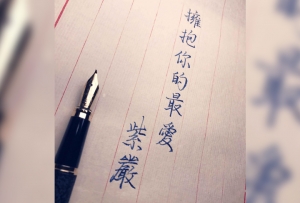 擁抱你的最愛
紫巖